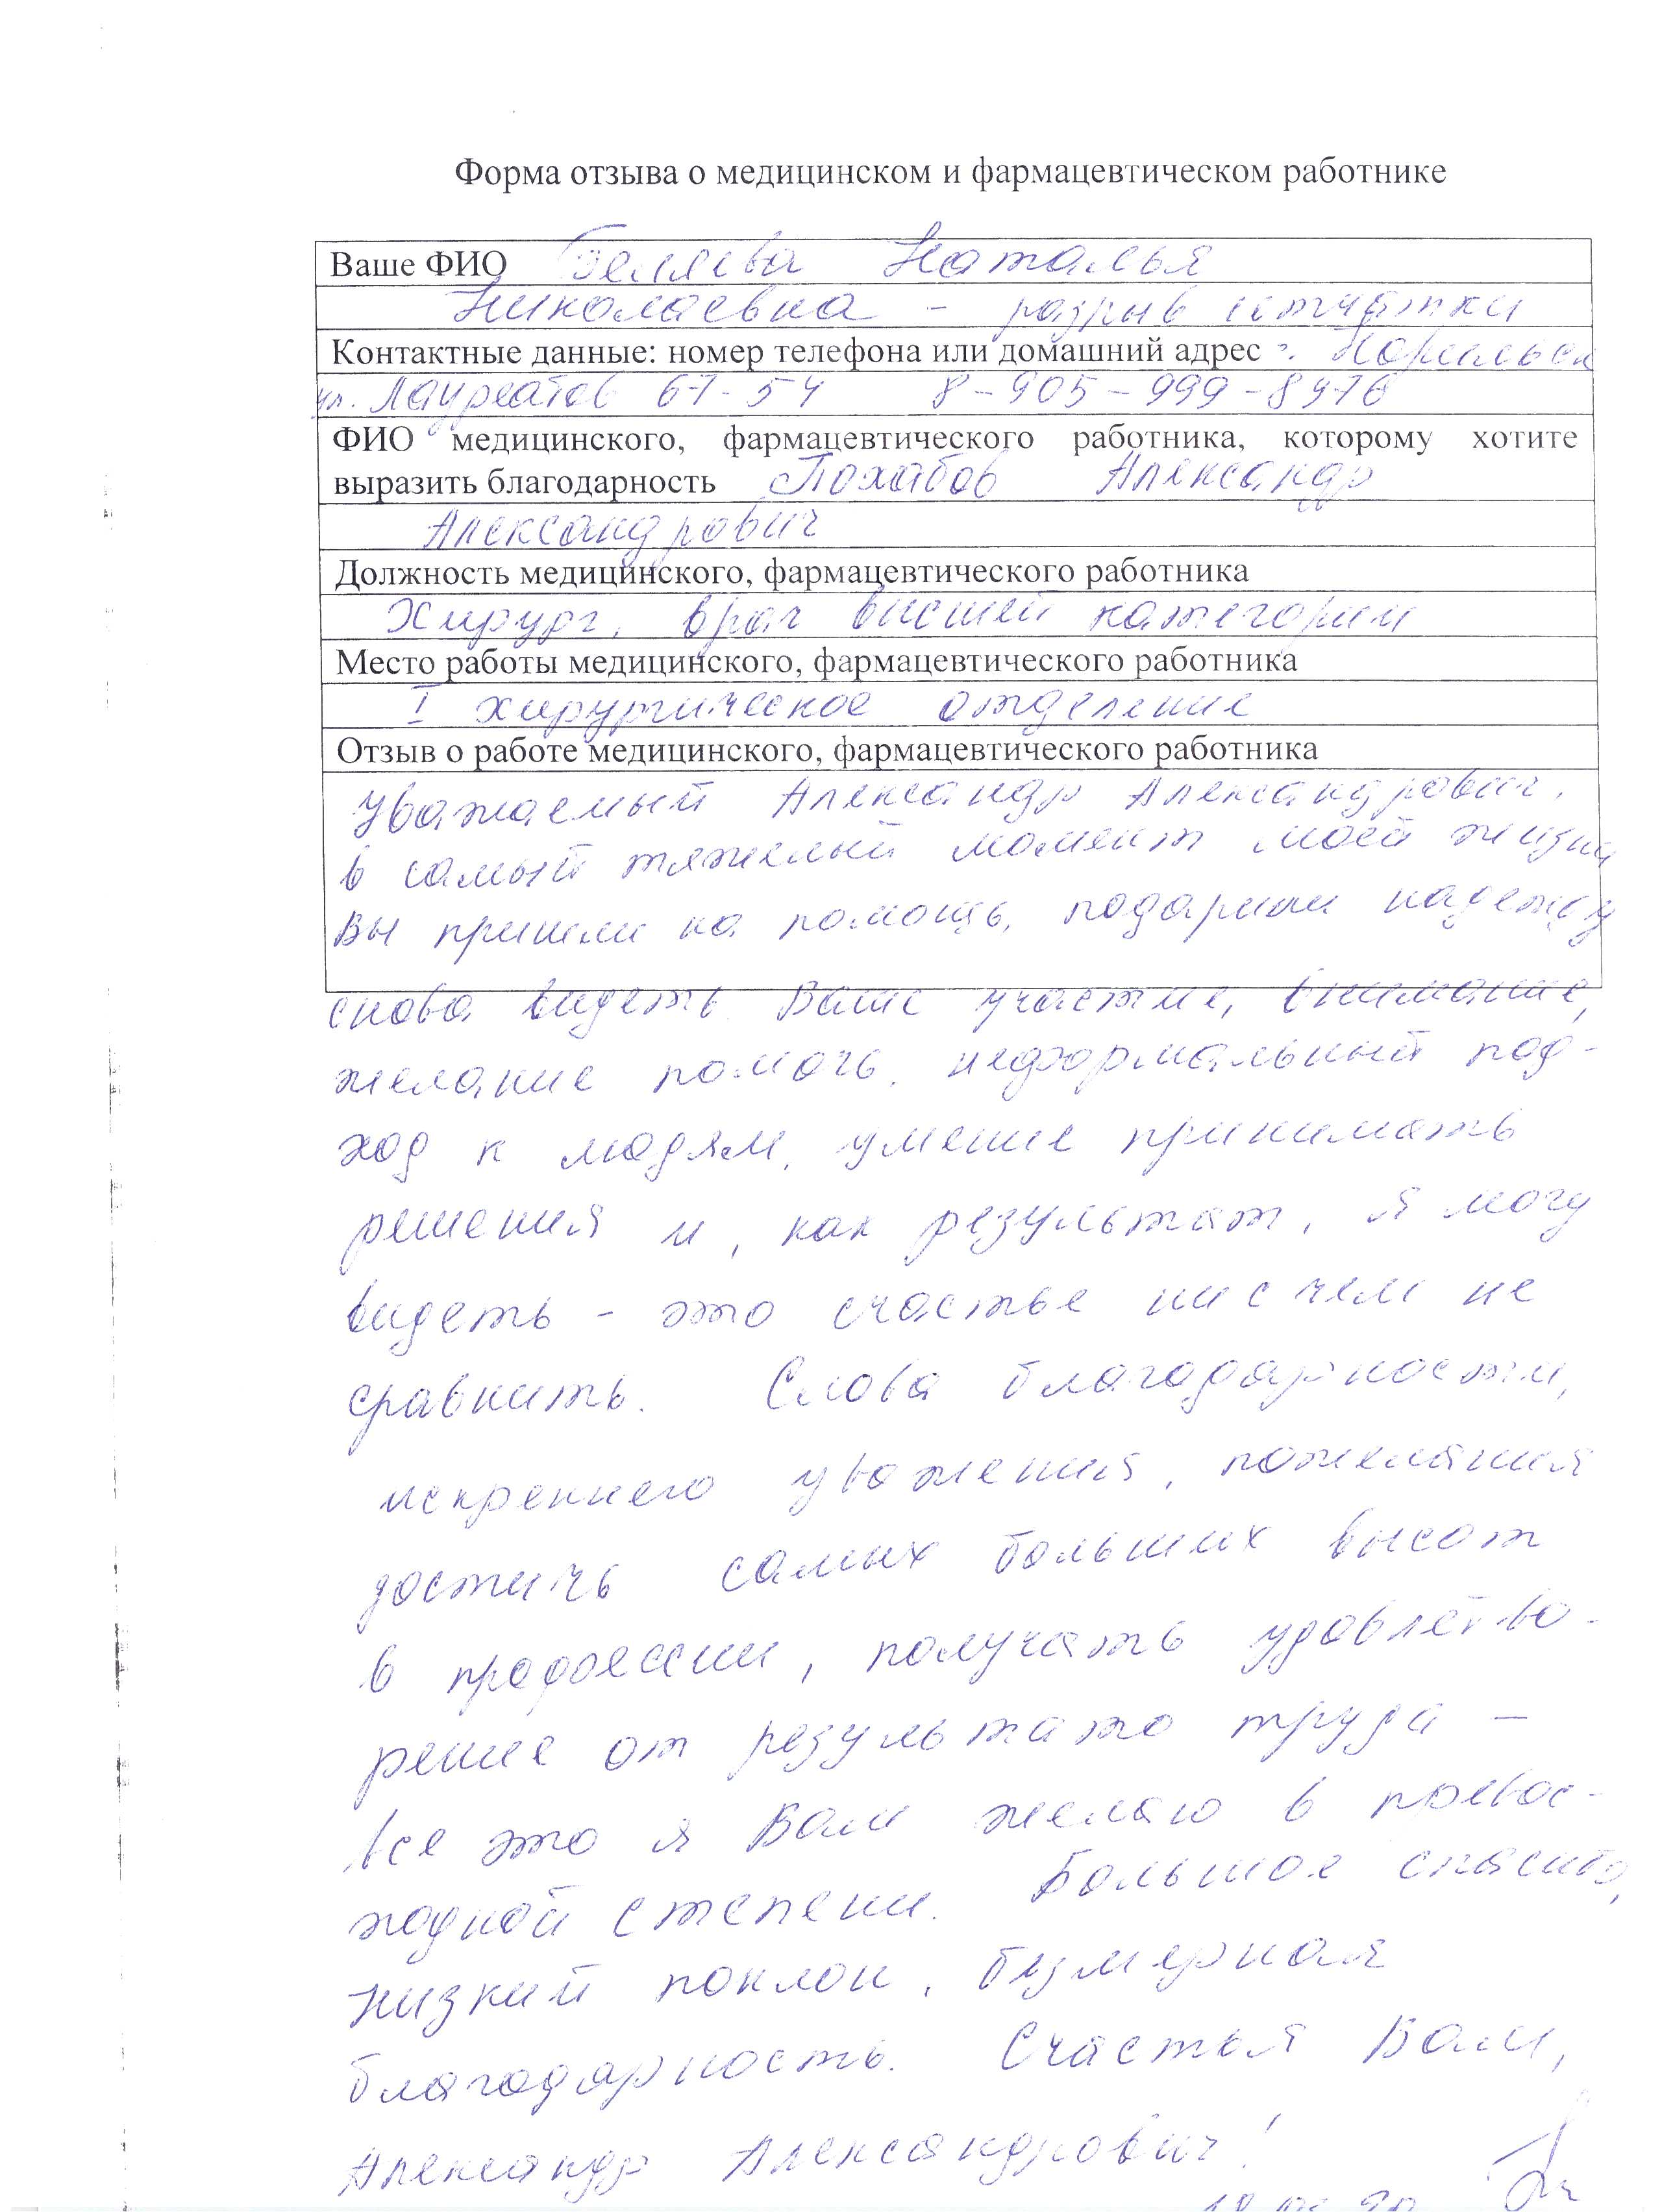 Форма отзыва о медицинском и фармацевтическом работнике
Ваше ФИО Беляева Наталья
Николаевна - разрыв сетчатки
Контактные данные: номер телефона или домашний адрес г. Норильск
ул. Лауреатов 67-54 8-905-999-8976
ФИО медицинского, фармацевтического работника, которому хотите
выразить благодарность Похабов Александр
Александрович
Должность медицинского, фармацевтического работника
Хирург, врач высшей категории
Место работы медицинского, фармацевтического работника
I хирургическое отделение
Отзыв о работе медицинского, фармацевтического работника
Уважаемый Александр Александрович,
в самый тяжелый момент моей жизни
Вы пришли на помощь, подарили надежду
снова видеть. Ваше участие, внимание,
желание помочь, неформальный под-
ход к людям, умение принимать
решения и, как результат, я могу
видеть - это счастье ни с чем не
сравнить. Слова благодарности,
искреннего уважения, пожелания
достичь самых больших высот
в профессии, получать удовлетво-
рение от результата труда -
все это я Вам желаю в превос-
ходной степени. Большое спасибо,
низкий поклон, безмерная
благодарность. Счастья Вам,
Александр Александрович!